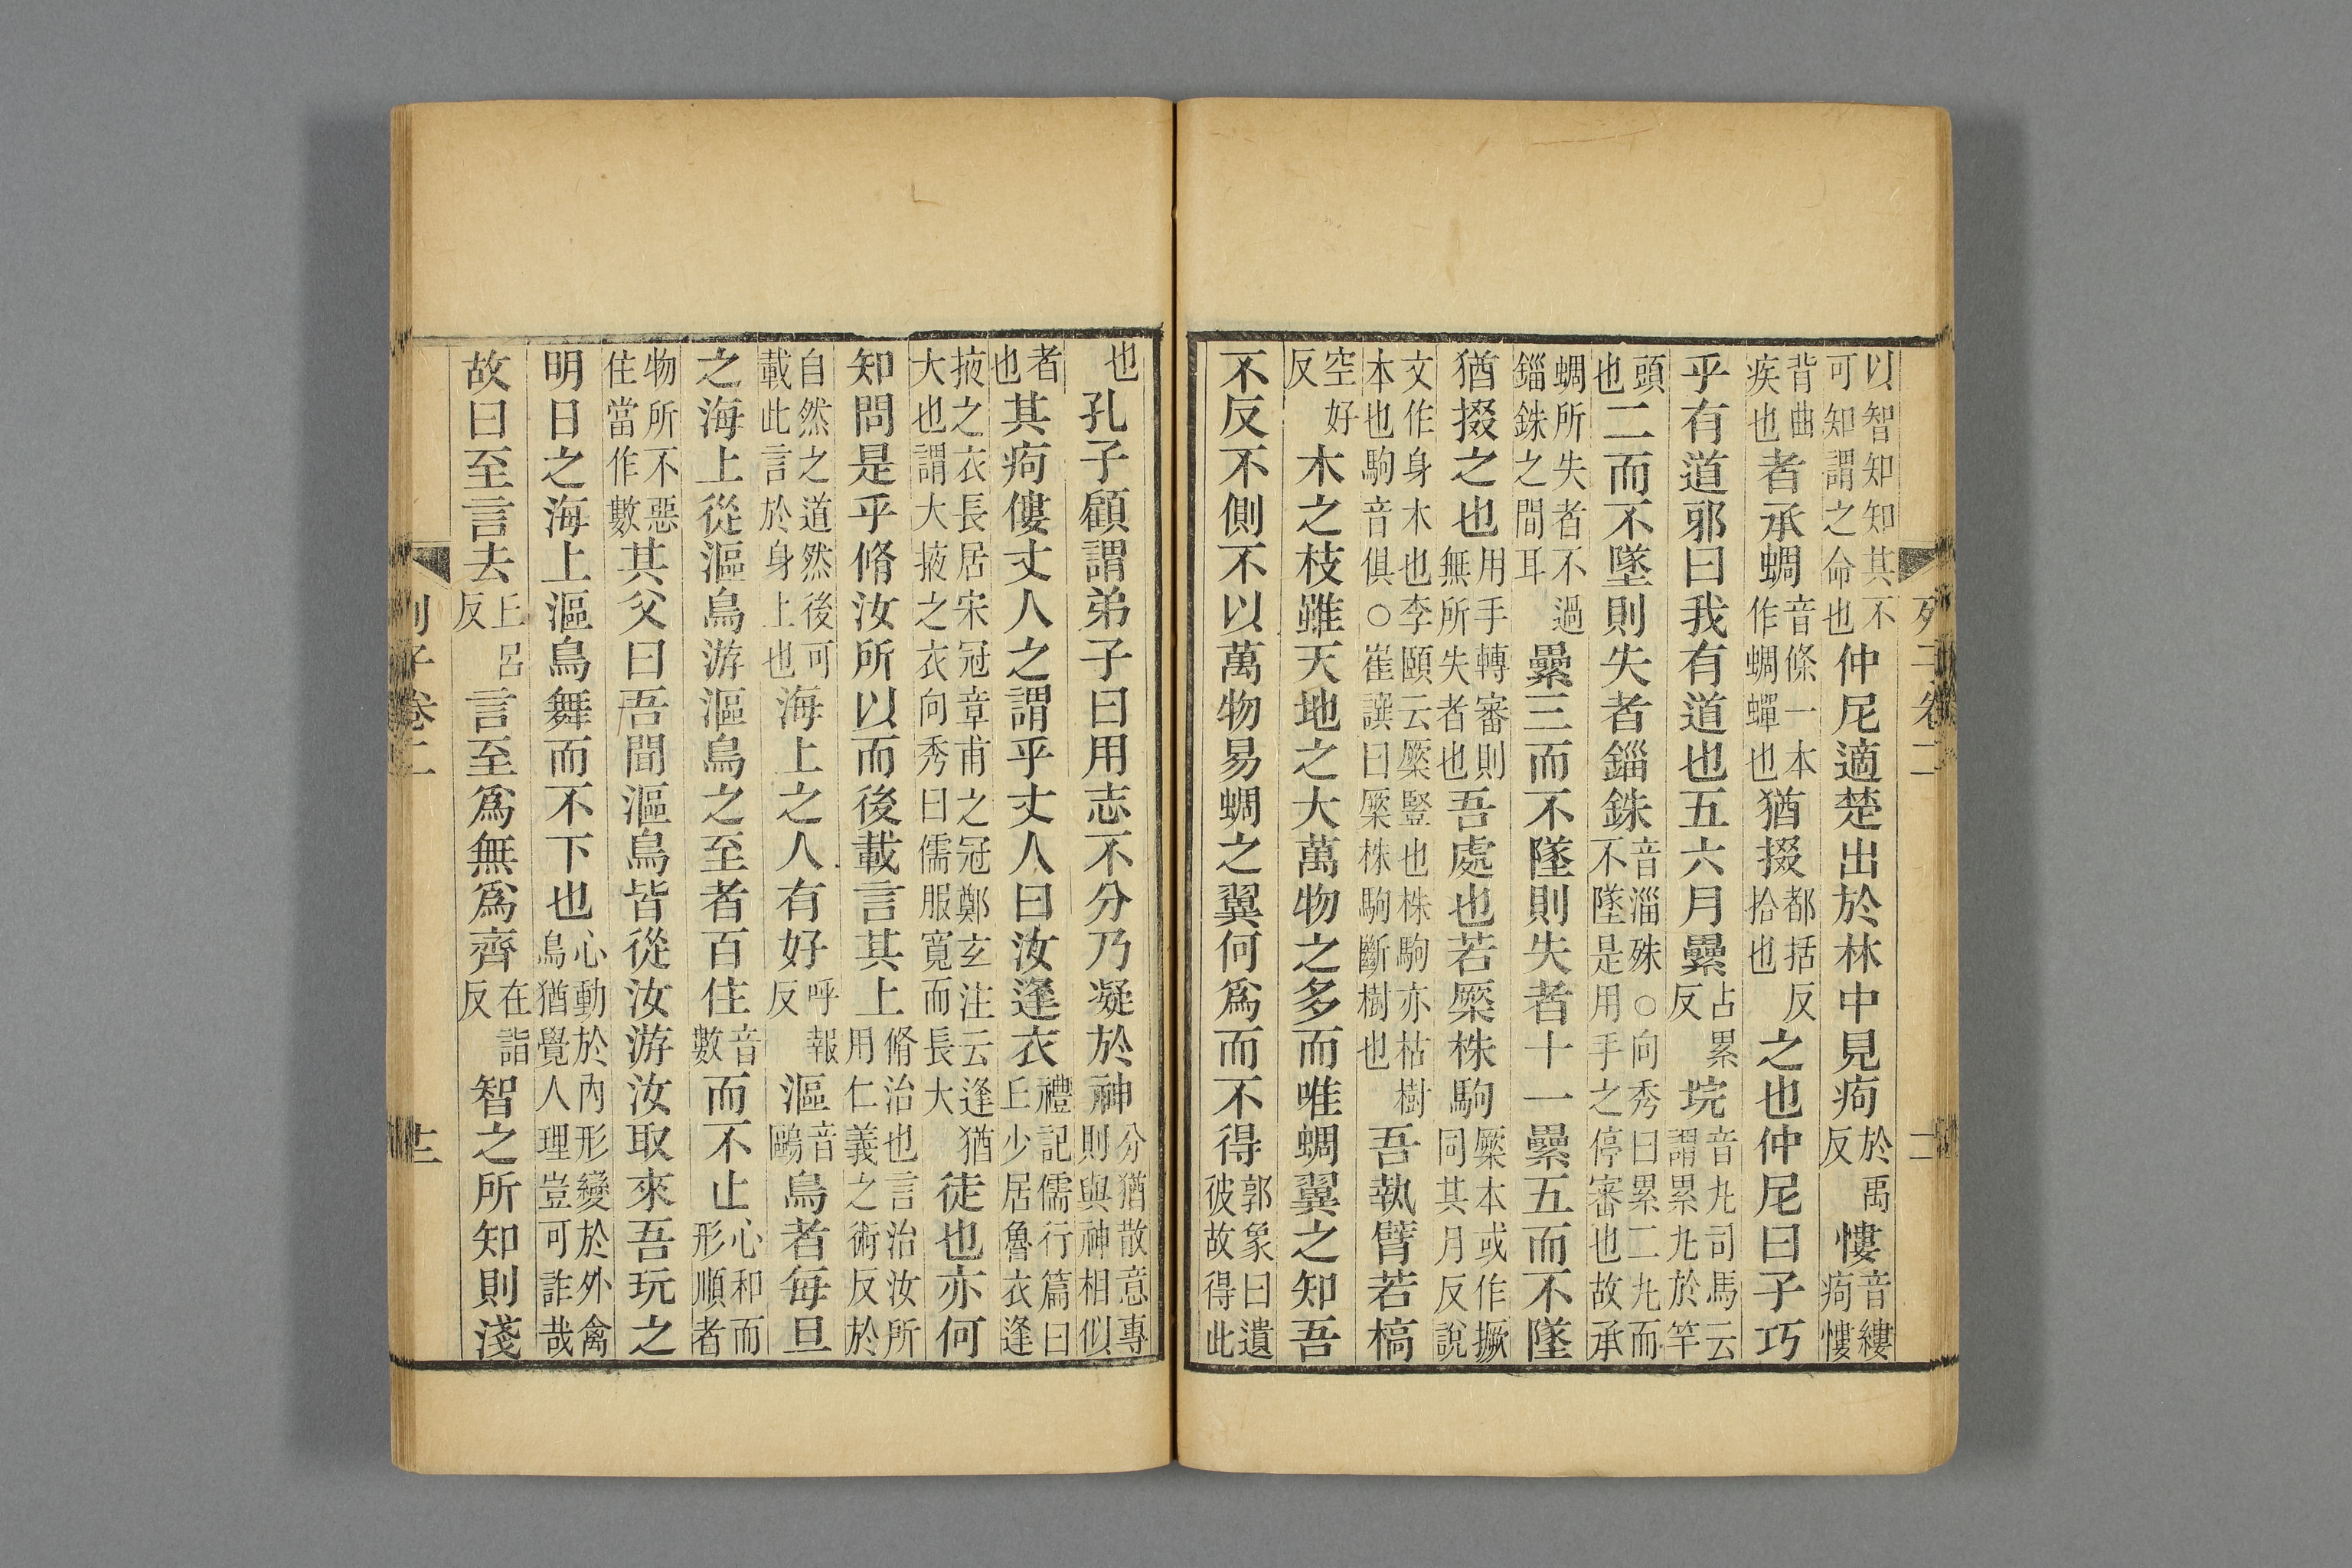 以智知知其不可知謂之命也仲尼適楚出於林中見痀於禹反慺音縷痀慺
背曲疾也者承蜩音條一本作蜩蟬也猶掇都括反拾也之也仲尼曰子巧
乎有道邪曰我有道也五六月纍占累反垸音丸司馬云謂累丸於竿
頭也二而不墜則失者錙銖音淄殊○向秀曰累二丸而不墜是用手之停審也故承
蜩所失者不過錙銖之間耳纍三而不墜則失者十一纍五而不墜
猶掇之也用手轉審則無所失者也吾處也若橜株駒橜本或作撅同其月反說
文作身木也李頤云橜豎也株駒亦枯樹本也駒音俱○崔譔曰橜株駒斷樹也吾執臂若槁
空好反木之枝雖天地之大萬物之多而唯蜩翼之知吾
不反不側不以萬物易蜩之翼何爲而不得郭象曰遺彼故得此
也孔子顧謂弟子曰用志不分乃凝於神分猶散意專則與神相似
者也其痀僂丈人之謂乎丈人曰汝逢衣禮記儒行篇曰丘少居魯衣逢
掖之衣長居宋冠章甫之冠鄭玄注云逢猶大也謂大掖之衣向秀曰儒服寬而長大徒也亦何
知問是乎脩汝所以而後載言其上脩治也言治汝所用仁義之術反於
自然之道然後可載此言於身上也海上之人有好呼報反漚音鷗鳥者每旦
之海上從漚鳥游漚鳥之至者百住音數而不止心和而形順者
物所不惡住當作數其父曰吾聞漚鳥皆從汝游汝取來吾玩之
明日之海上漚鳥舞而不下也心動於內形變於外禽鳥猶覺人理豈可詐哉
故曰至言去丘呂反言至爲無爲齊在詣反智之所知則淺
列子卷二